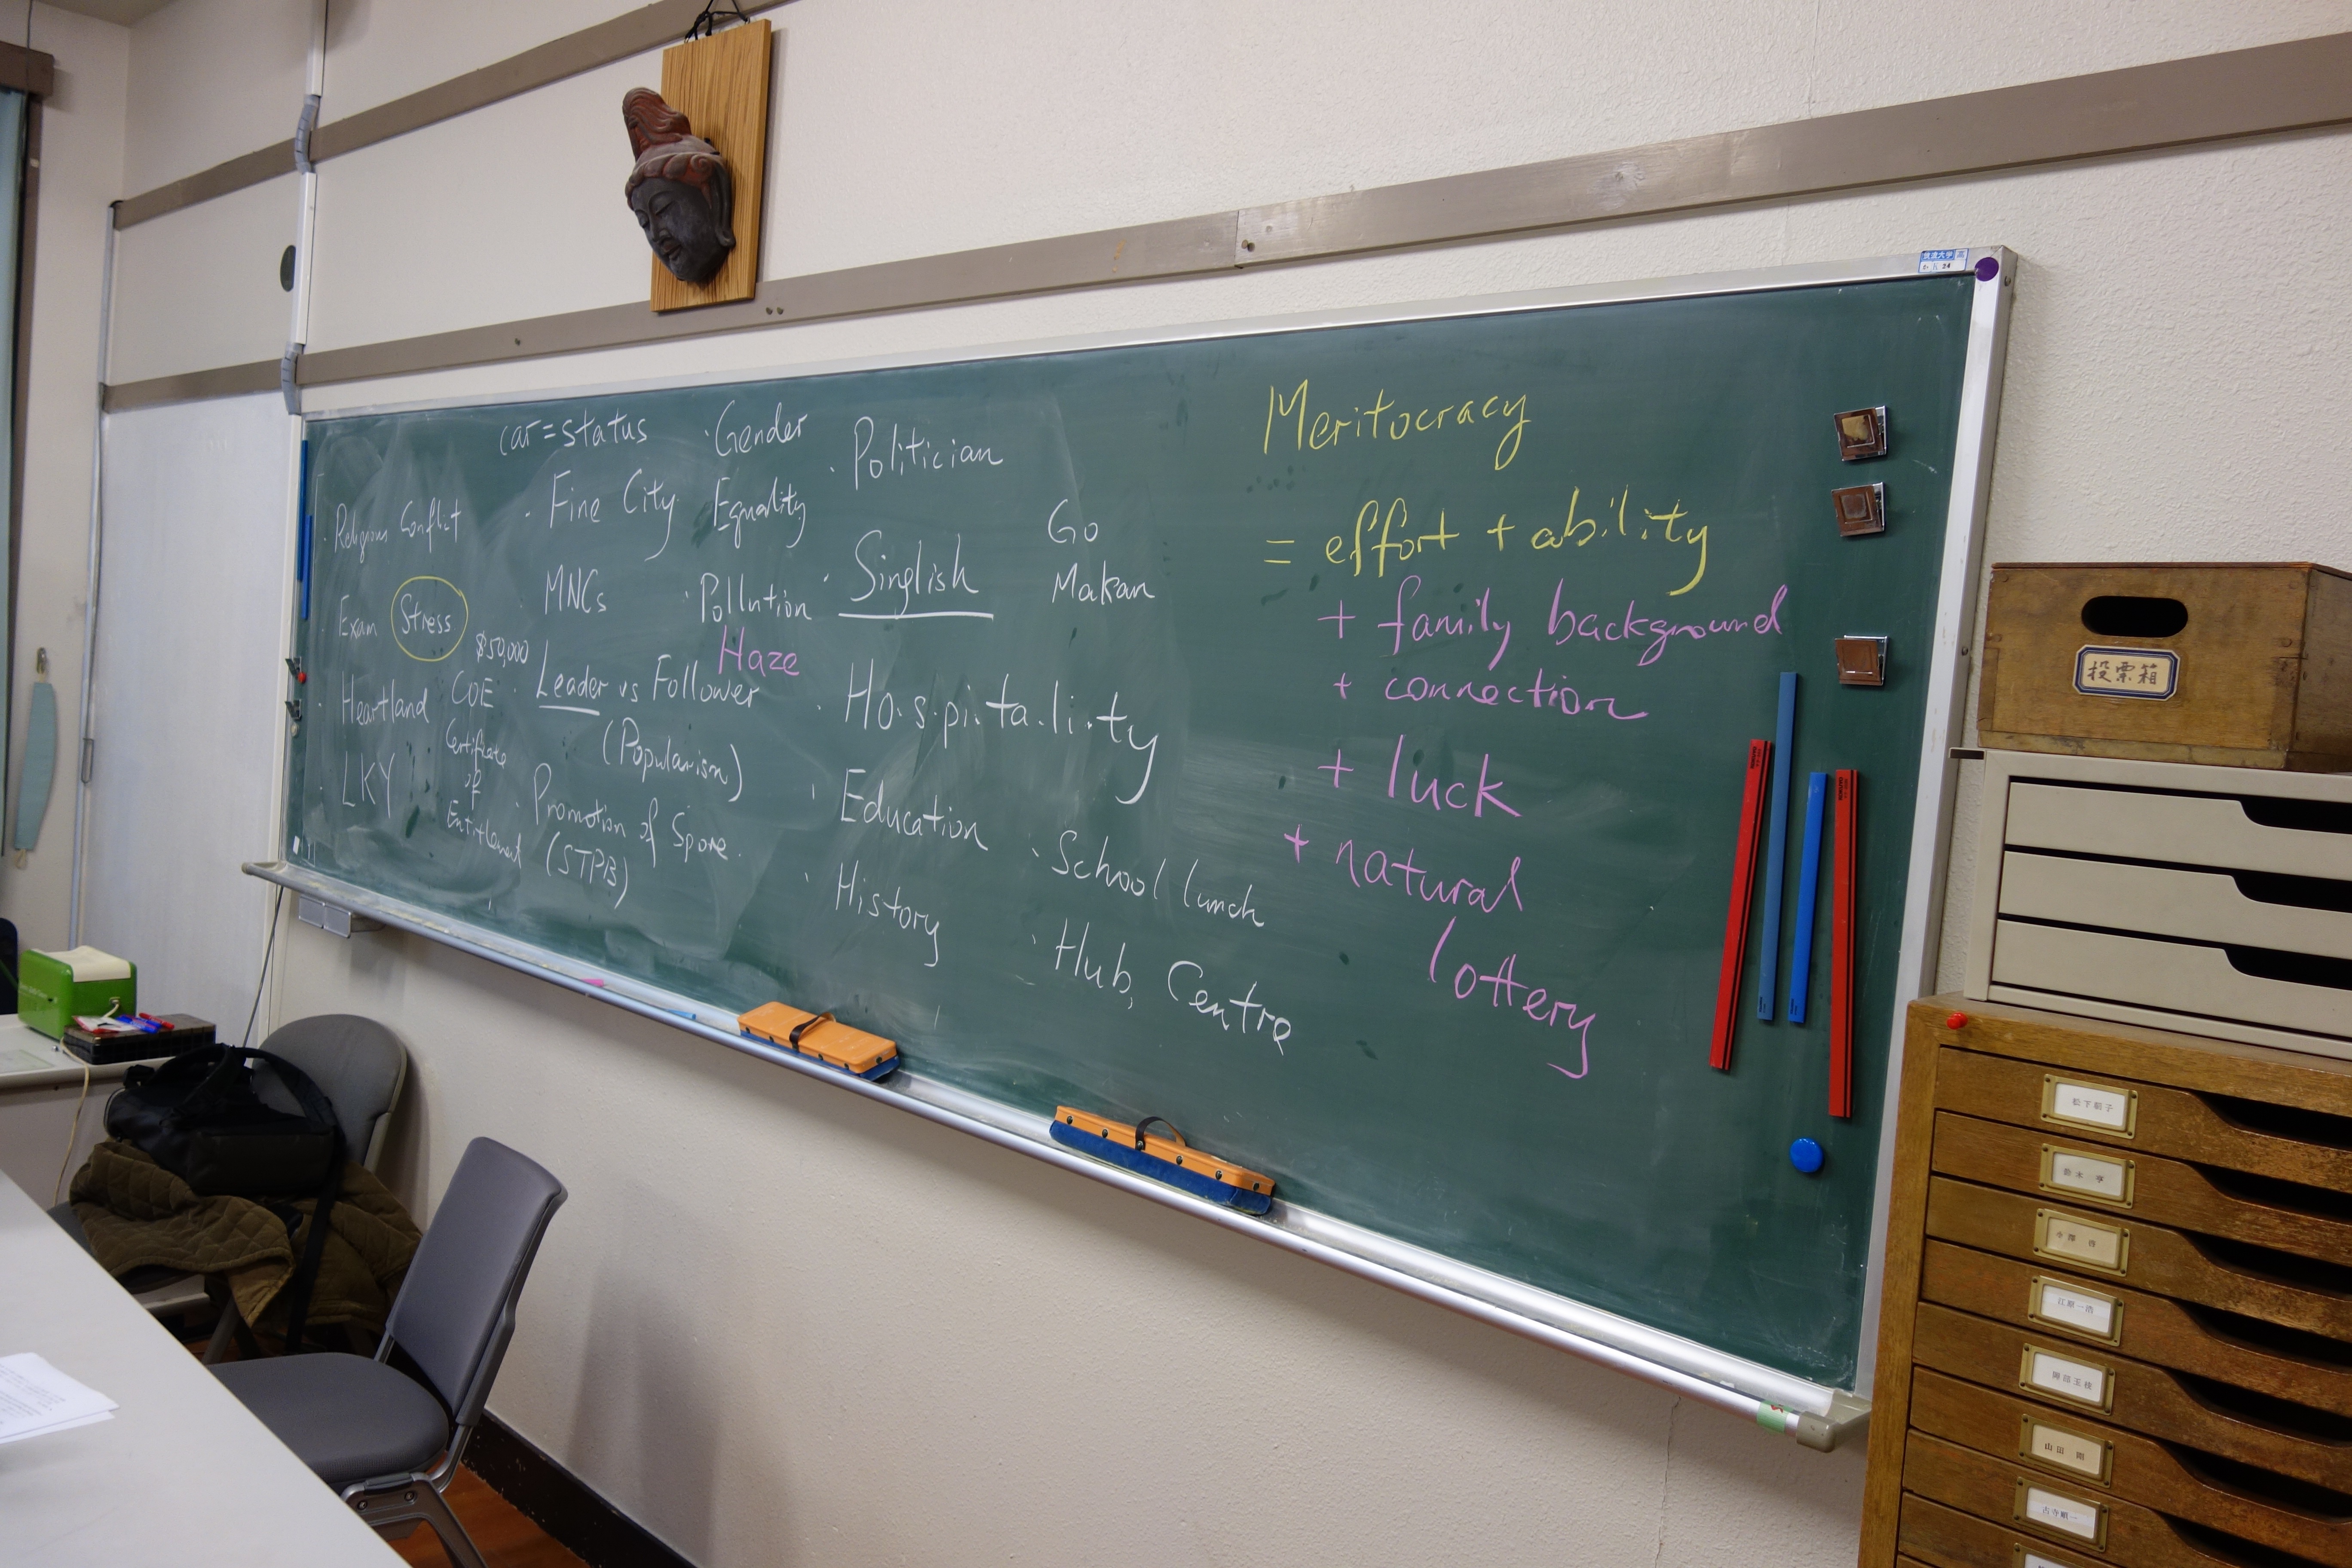 car=status
· Religious Conflict
Exam Stress
· Heartland
· LKY
$50,000
COE
Certificate
of
Entitlement
· Fine City
· MNCs
· Leader vs Follower
(Popularism)
· Promotion of Spore.
(STPB)
· Gender
Equality
· Pollution
Haze
· Politician
· Singlish
Go
Makan
· Ho.s.pi.ta.li.ty
· Education
· History
· School lunch
· Hub, Centre
Meritocracy
= effort + ability
+ family background
+ connection
+ luck
+ natural
lottery
筑波大学
投票箱
山田